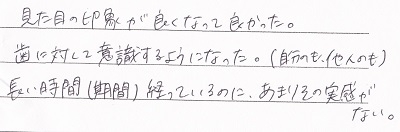 見た目の印象が良くなって良かった。
歯に対して意識するようになった。(自分のも、他人のも)
長い時間(期間)経っているのに、あまりその実感が
ない。